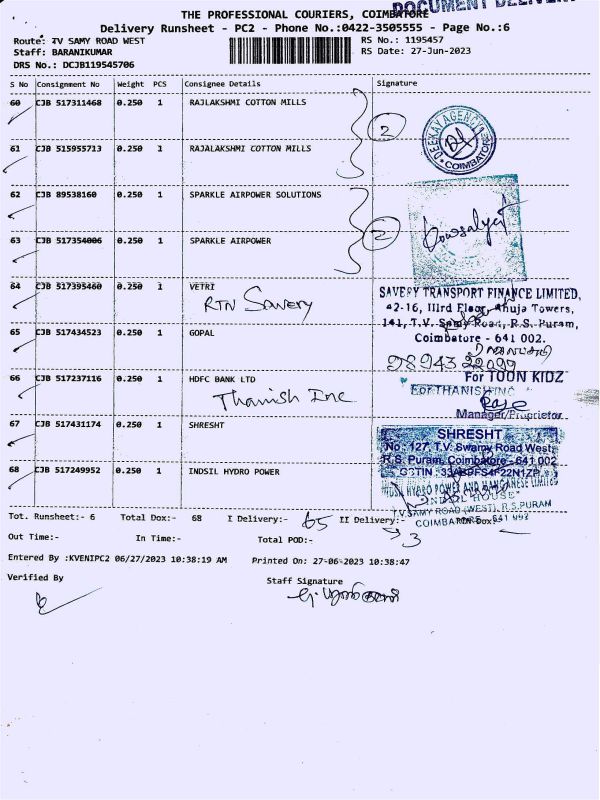 DOCUMENT
THE PROFESSIONAL COURIERS, COIMBATORE
Delivery Runsheet - PC2 - Phone No.:0422-3505555 - Page No.:6
Route: TV SAMY ROAD WEST
RS No.: 1195457
Staff: BARANIKUMAR
RS Date: 27-Jun-2023
DRS No.: DCJB119545706
S No Consignment No Weight PCS Consignee Details Signature
60 CJB 517311468 0.250 1 RAJLAKSHMI COTTON MILLS
2
DEEKAY AGENCY
COIMBATORE
61 CJB 515955713 0.250 1 RAJALAKSHMI COTTON MILLS
62 CJB 89538160 0.250 1 SPARKLE AIRPOWER SOLUTIONS
2
63 CJB 517354006 0.250 1 SPARKLE AIRPOWER
64 CJB 517395460 0.250 1 VETRI
RTN Savery
SAVERY TRANSPORT FINANCE LIMITED,
42-16, IIIrd Floor, Ahuja Towers,
141, T.V. Samy Road, R.S. Puram,
Coimbatore - 641 002.
65 CJB 517434523 0.250 1 GOPAL
9894322099
For TOON KIDZ
66 CJB 517237116 0.250 1 HDFC BANK LTD
Thanish Inc
For THANISH INC
Manager/Proprietor
67 CJB 517431174 0.250 1 SHRESHT
SHRESHT
No: 127, T.V. Swamy Road West,
R.S. Puram, Coimbatore - 641 002
GSTIN : 33ABPFS4F22N1ZP
68 CJB 517249952 0.250 1 INDSIL HYDRO POWER
INDSIL HYDRO POWER AND MANGANESE LIMITED
"INDSIL HOUSE"
T.V.SAMY ROAD (WEST), R.S.PURAM
COIMBATORE - 641 002
Tot. Runsheet:- 6 Total Dox:- 68 I Delivery:- 65 II Delivery:- RTN Dox:-
Out Time:- In Time:- Total POD:- 3
Entered By :KVENIPC2 06/27/2023 10:38:19 AM Printed On: 27-06-2023 10:38:47
Verified By Staff Signature